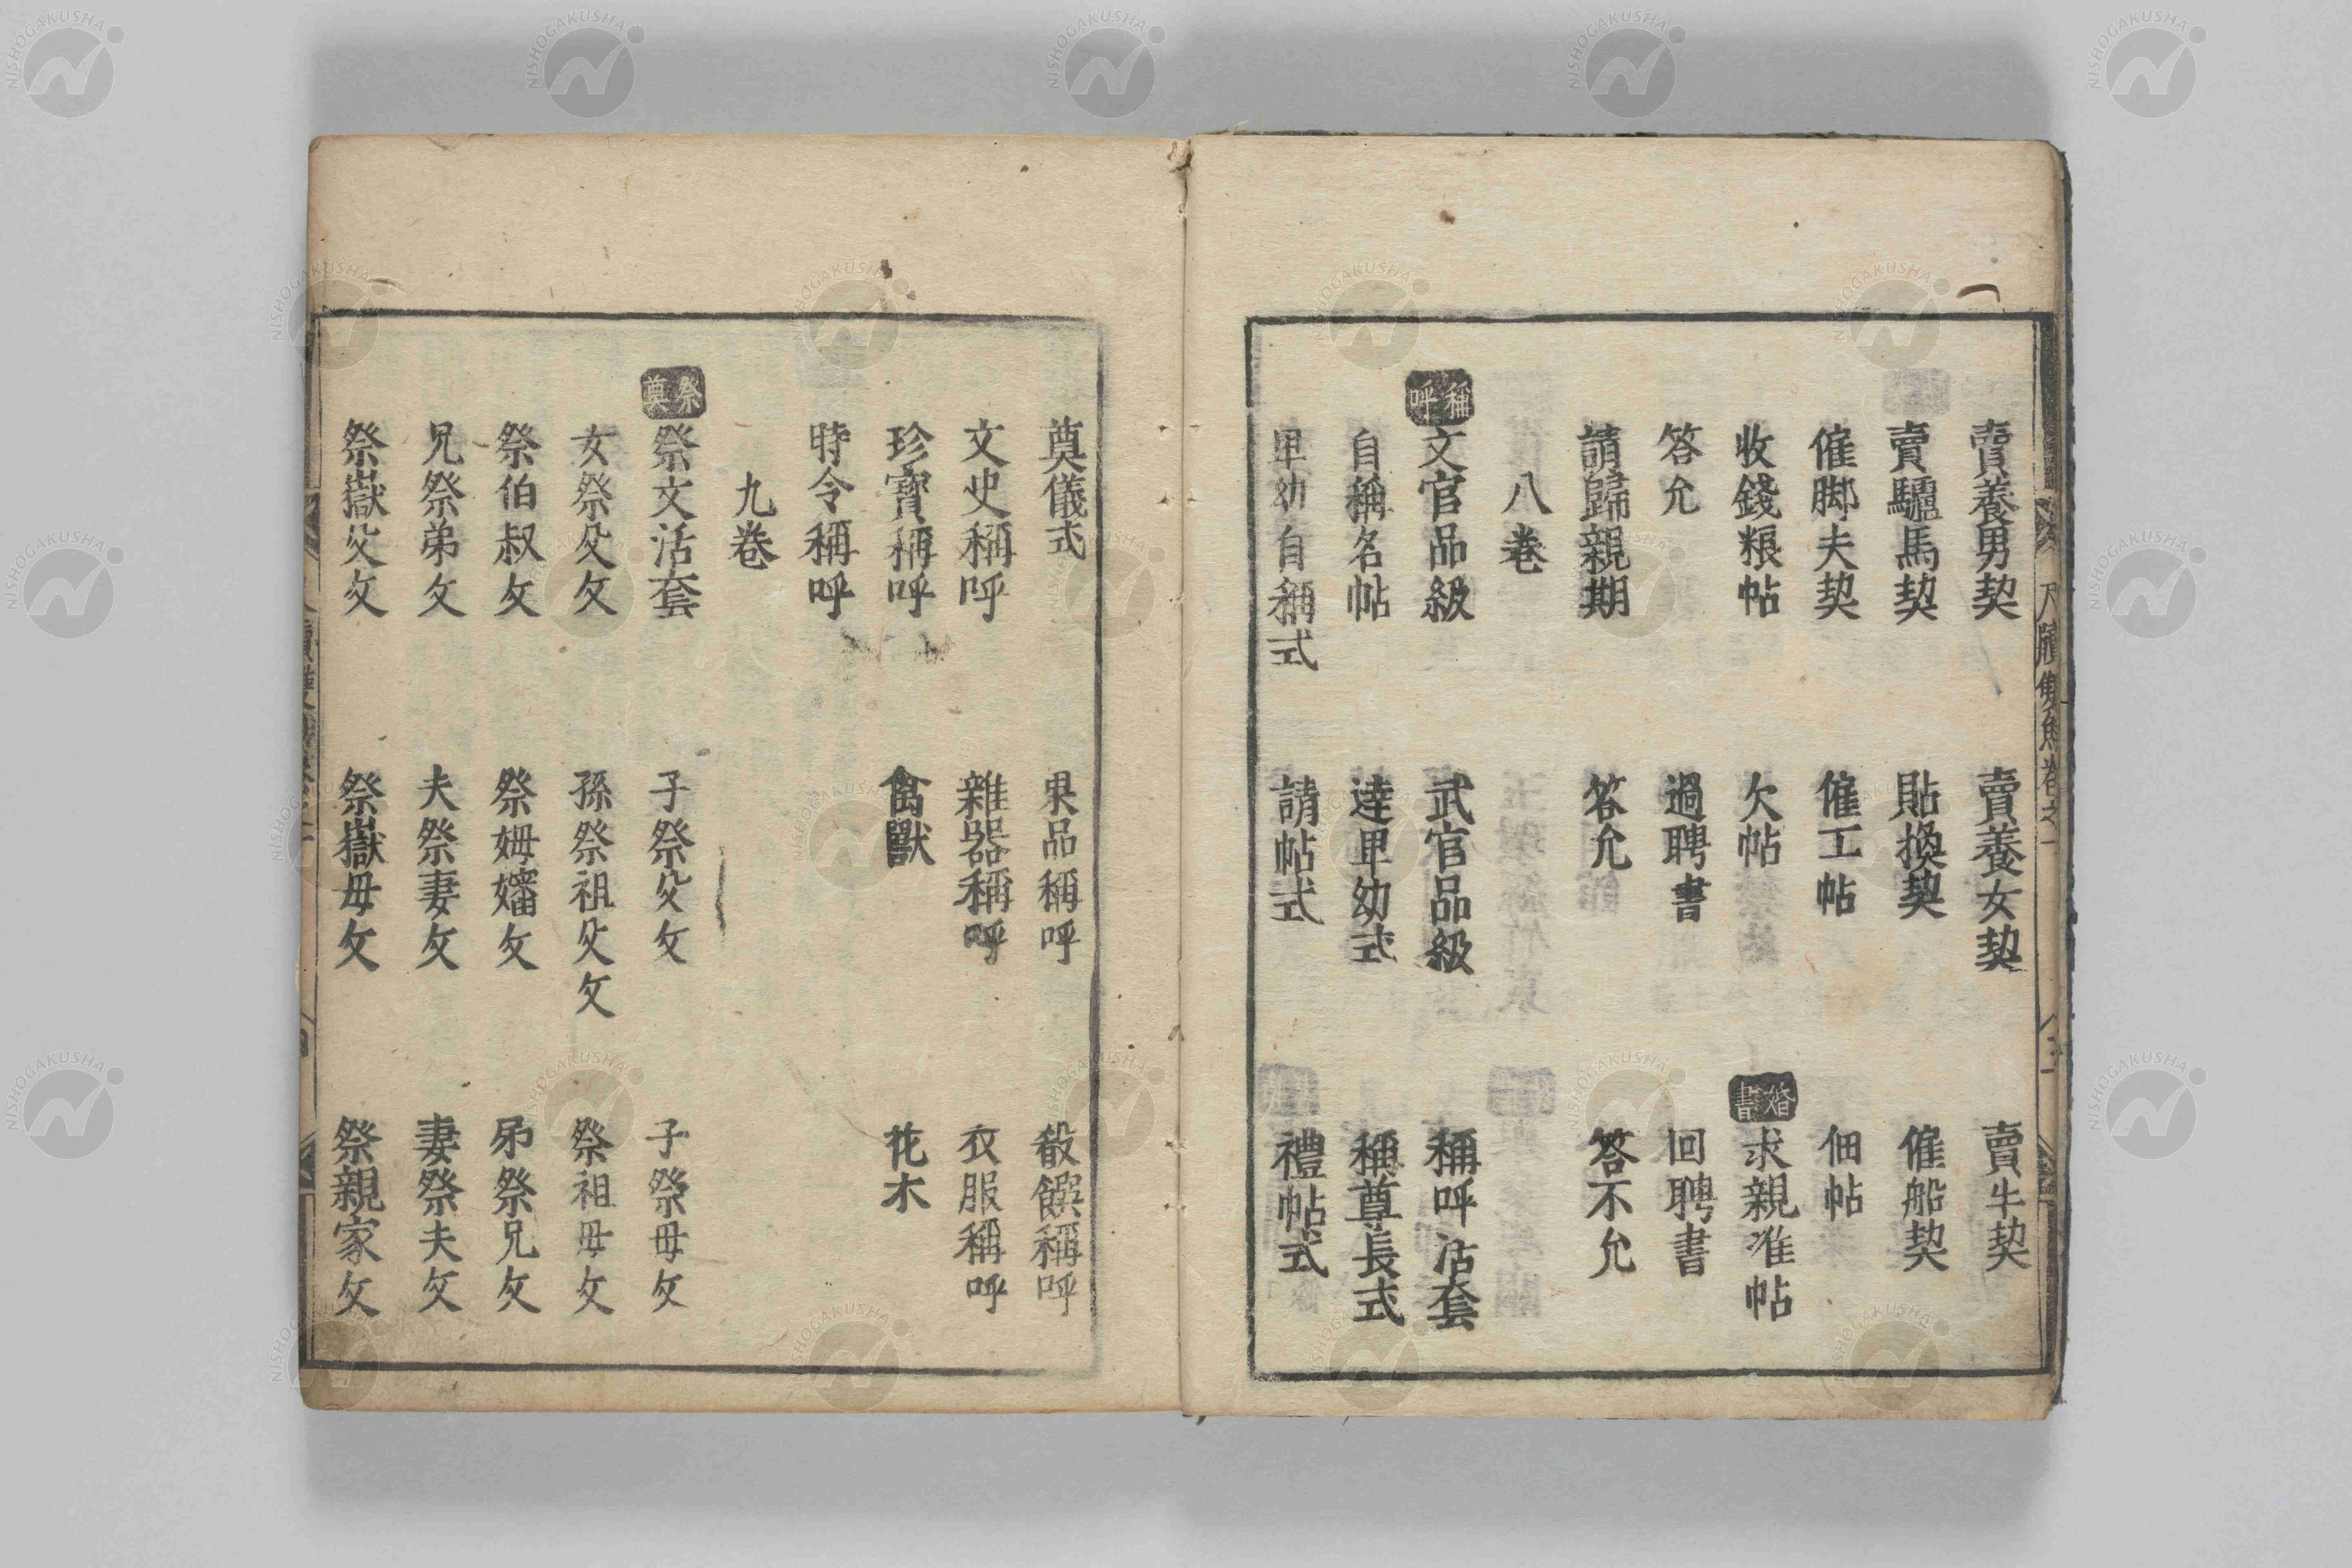 賣養男契 賣養女契 賣牛契
賣驢馬契 貼換契 僱船契
僱脚夫契 僱工帖 佃帖
收錢粮帖 欠帖 婚書 求親准帖
答允 過聘書 回聘書
請歸親期 答允 答不允
八卷
稱呼 文官品級 武官品級 稱呼活套
自稱名帖 達卑幼式 稱尊長式
卑幼自稱式 請帖式 禮帖式
奠儀式 果品稱呼 殽饌稱呼
文史稱呼 雜器稱呼 衣服稱呼
珍寶稱呼 禽獸 花木
時令稱呼
九卷
祭奠 祭文活套 子祭父文 子祭母文
女祭父文 孫祭祖父文 祭祖母文
祭伯叔文 祭姆嬸文 弟祭兄文
兄祭弟文 夫祭妻文 妻祭夫文
祭嶽父文 祭嶽母文 祭親家文
尺牘雙魚卷之一
NISHOGAKUSHA